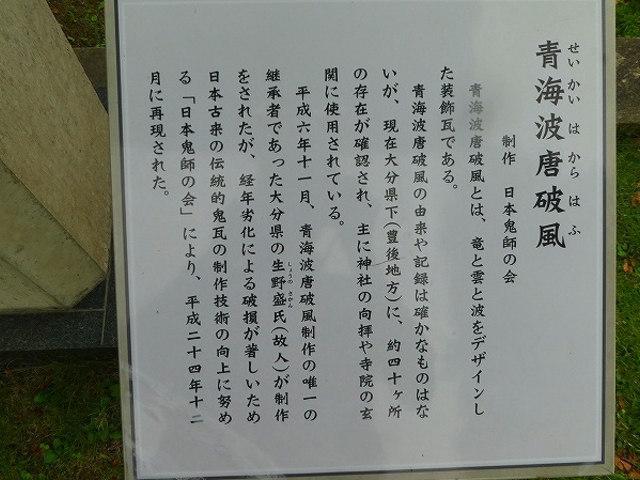 青海波唐破風
せいかいはからはふ
制作　日本鬼師の会
青海波唐破風とは、竜と雲と波をデザインし
た装飾瓦である。
青海波唐破風の由来や記録は確かなものはな
いが、現在大分県下(豊後地方)に、約四十ヶ所
の存在が確認され、主に神社の向拝や寺院の玄
関に使用されている。
平成六年十一月、青海波唐破風制作の唯一の
継承者であった大分県の生野盛氏(故人)が制作
しょうの　とかん
をされたが、経年劣化による破損が著しいため
日本古来の伝統的鬼瓦の制作技術の向上に努め
る「日本鬼師の会」により、平成二十四年十二
月に再現された。